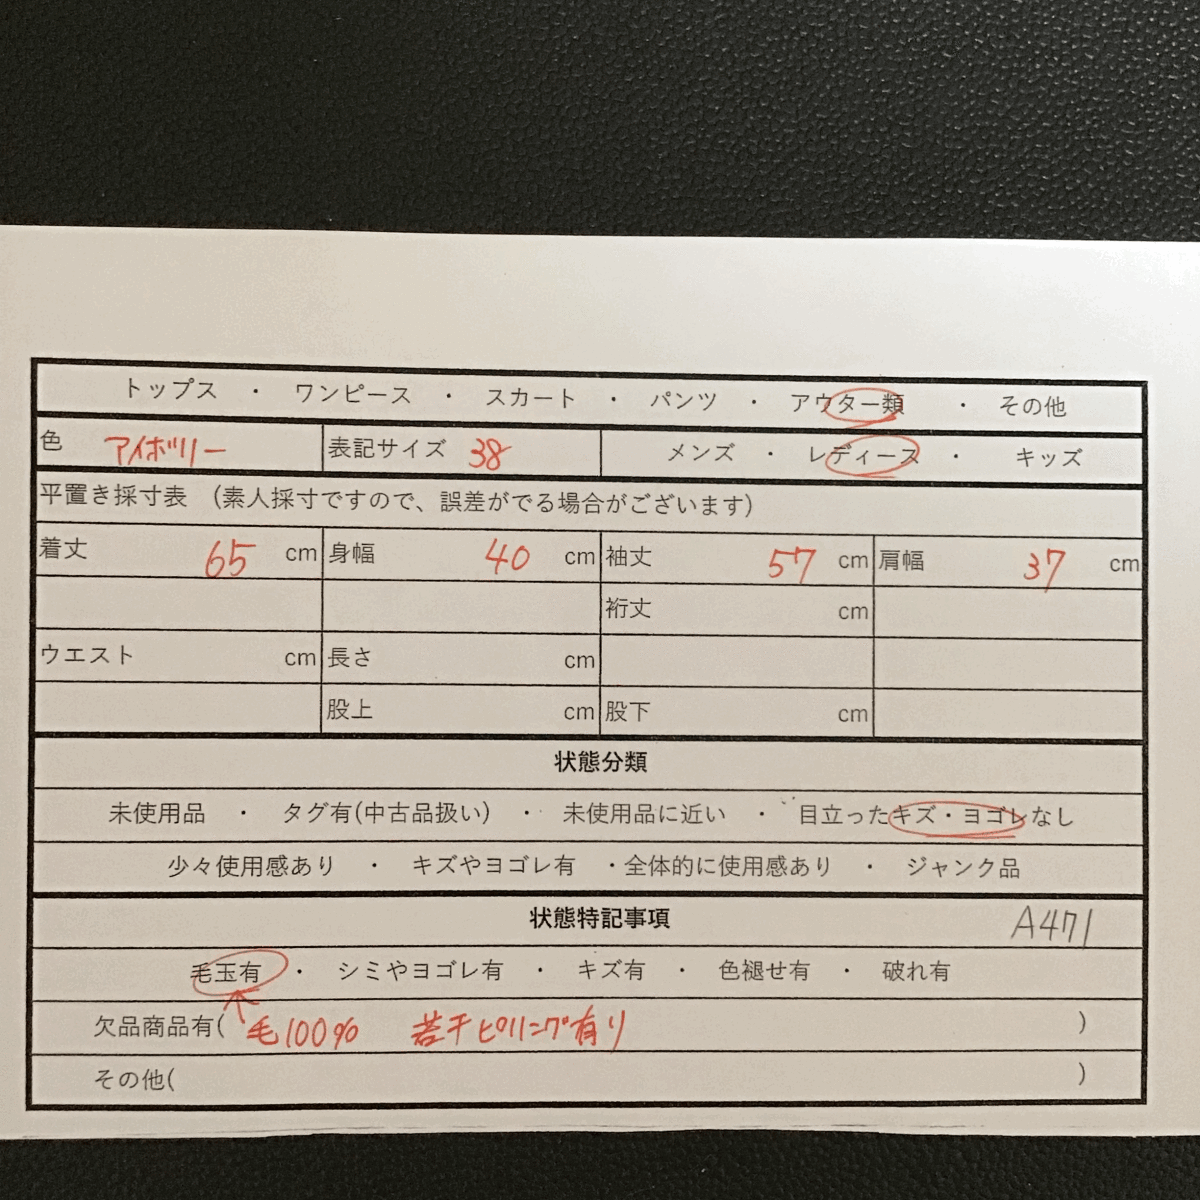 トップス ・ ワンピース ・ スカート ・ パンツ ・ アウター類 ・ その他
色 アイボリー 表記サイズ 38 メンズ ・ レディース ・ キッズ
平置き採寸表 （素人採寸ですので、誤差がでる場合がございます）
着丈 65 cm 身幅 40 cm 袖丈 57 cm 肩幅 37 cm
裄丈 cm
ウエスト cm 長さ cm
股上 cm 股下 cm
状態分類
未使用品 ・ タグ有(中古品扱い) ・ 未使用品に近い ・ 目立ったキズ・ヨゴレなし
少々使用感あり ・ キズやヨゴレ有 ・全体的に使用感あり ・ ジャンク品
状態特記事項 A471
毛玉有 ・ シミやヨゴレ有 ・ キズ有 ・ 色褪せ有 ・ 破れ有
欠品商品有( 毛100% 若干ピリング有り )
その他( )